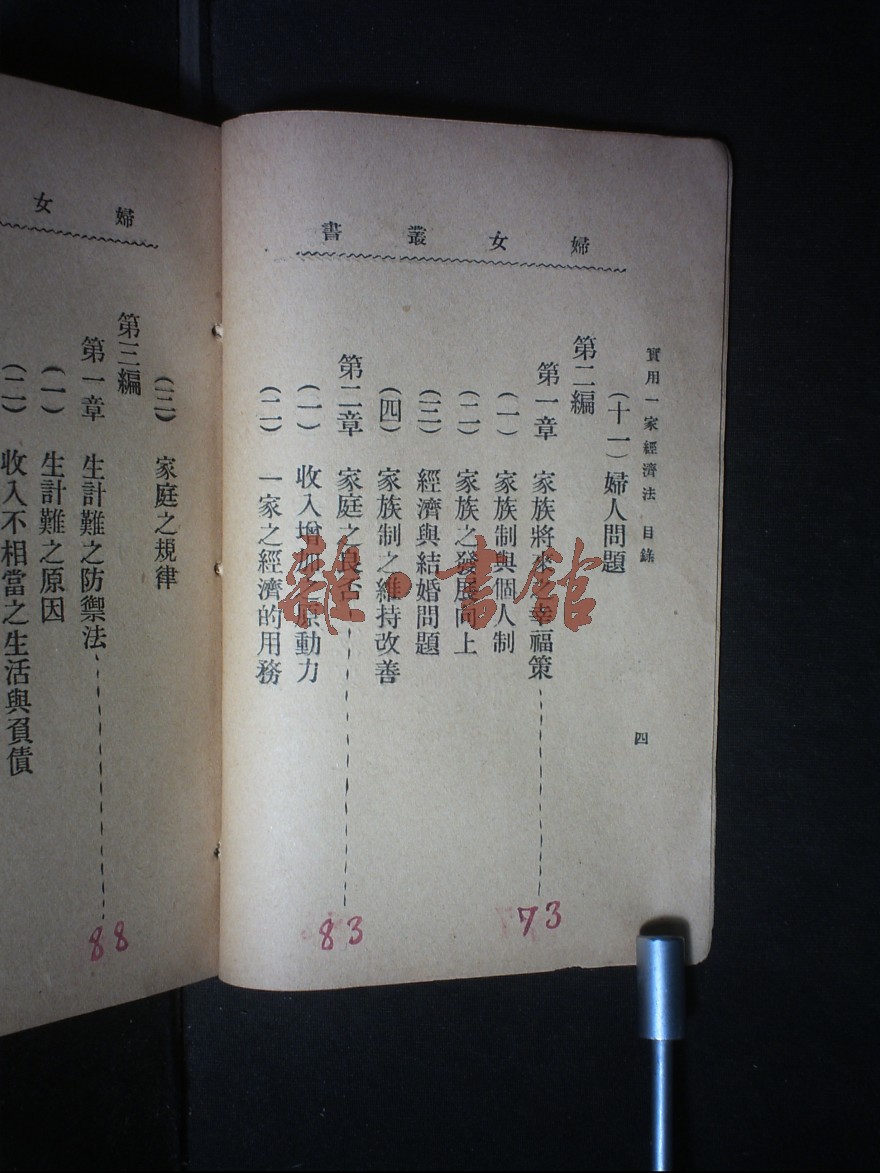 婦女叢書
實用一家經濟法 目錄
四
(十一)婦人問題
第二編
第一章 家族將來之幸福策 73
(一) 家族制與個人制
(二) 家族之發展向上
(三) 經濟與結婚問題
(四) 家族制之維持改善
第二章 家庭之良否 83
(一) 收入增加之原動力
(二) 一家之經濟的用務
婦女
(三) 家庭之規律
第三編
第一章 生計難之防禦法 88
(一) 生計難之原因
(二) 收入不相當之生活與負債
雜·書館